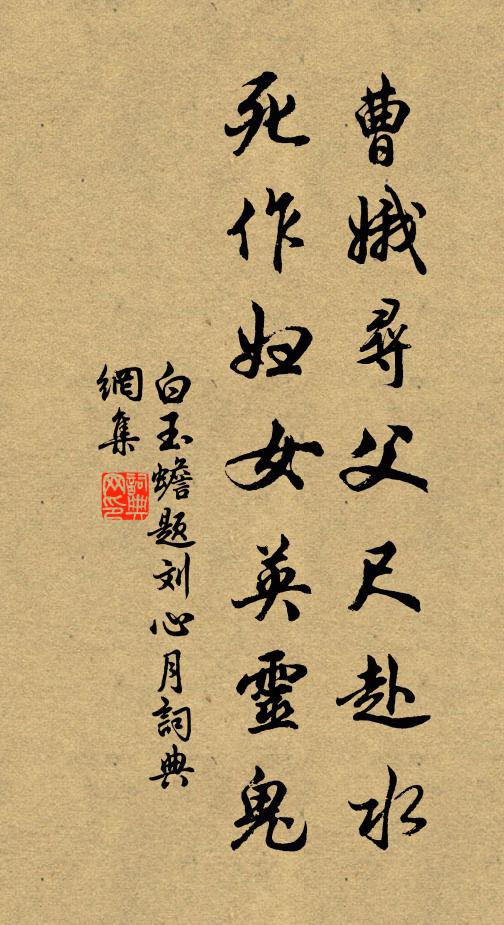 曹娥尋父尺赴水
死作妇女英靈鬼
白玉蟾题刘心月詞典
網集
詞典
网印